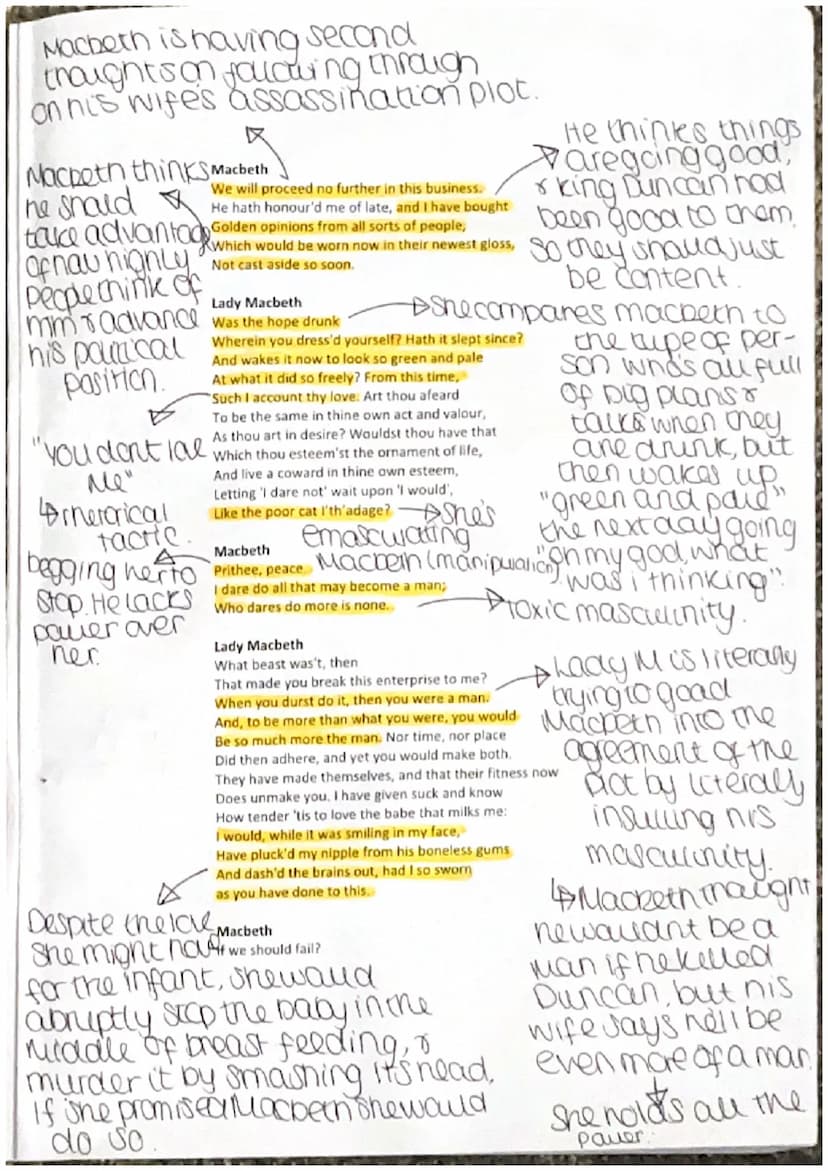 Macbeth is having second
thoughts on following through
on his wife's assassination plot.
He thinks things
are going good,
& king Duncan had
been good to them.
So they should just
be content.
Macbeth thinks
he should
take advantage
of how highly
people think of
him & advance
his political
position.
Macbeth
We will proceed no further in this business.
He hath honour'd me of late, and I have bought
Golden opinions from all sorts of people,
Which would be worn now in their newest gloss,
Not cast aside so soon.
Lady Macbeth
Was the hope drunk
Wherein you dress'd yourself? Hath it slept since?
And wakes it now to look so green and pale
At what it did so freely? From this time,
Such I account thy love. Art thou afeard
To be the same in thine own act and valour,
As thou art in desire? Wouldst thou have that
Which thou esteem'st the ornament of life,
And live a coward in thine own esteem,
Letting 'I dare not' wait upon 'I would',
Like the poor cat I'th'adage?
She compares macbeth to
the type of per-
son who's all full
of big plans &
talks when they
are drunk, but
then wakes up
"green and pale"
the next day going
"oh my god, what
was i thinking".
"you dont love
Me"
↳ rhetorical
tactic.
She's
emasculating
Macbeth (manipulation)
begging her to
stop. He lacks
power over
her.
Macbeth
Prithee, peace.
I dare do all that may become a man;
Who dares do more is none.
toxic masculinity.
Lady Macbeth
What beast was't, then
That made you break this enterprise to me?
When you durst do it, then you were a man.
And, to be more than what you were, you would
Be so much more the man. Nor time, nor place
Did then adhere, and yet you would make both.
They have made themselves, and that their fitness now
Does unmake you. I have given suck and know
How tender 'tis to love the babe that milks me:
I would, while it was smiling in my face,
Have pluck'd my nipple from his boneless gums
And dash'd the brains out, had I so sworn
as you have done to this.
Lady M is literally
trying to goad
Macbeth into the
agreement of the
plot by literally
insulting his
masculinity.
↳ Macbeth thought
he wouldnt be a
man if he killed
Duncan, but his
wife says he'll be
even more of a man.
She holds all the
power.
Macbeth
If we should fail?
Despite the love
she might have
for the infant, she would
abruptly stop the baby in the
middle of breast feeding, &
murder it by smashing its head,
If she promised Macbeth she would
do so.